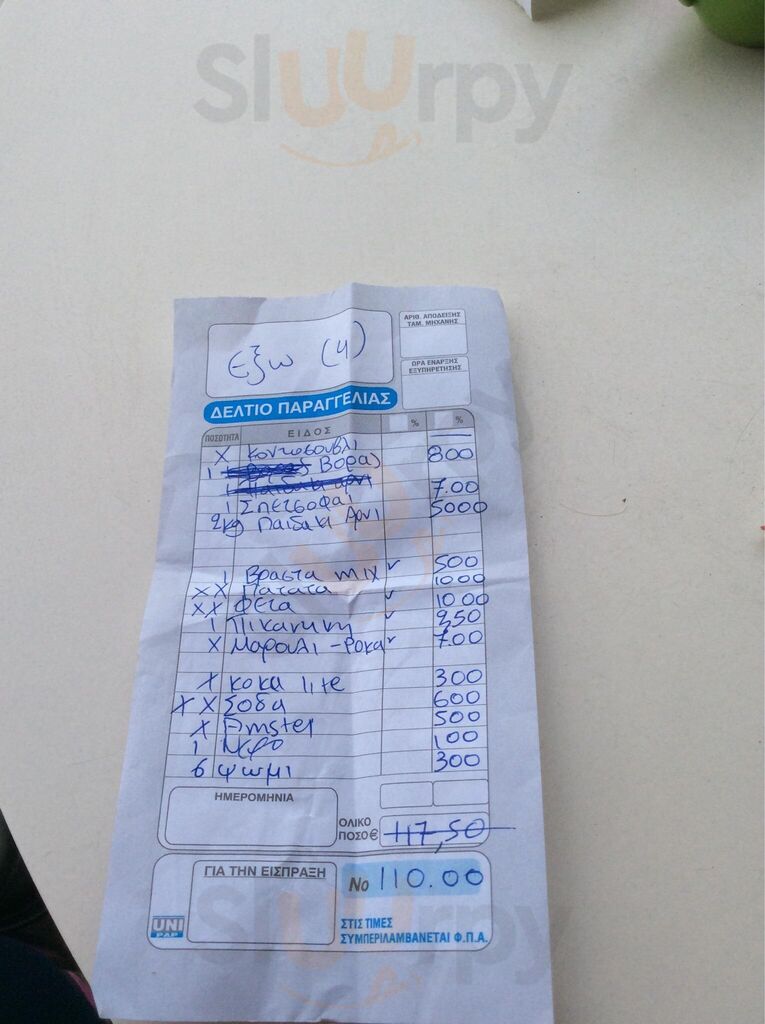 SluUrpy
ΑΡΙΘ. ΑΠΟΔΕΙΞΗΣ
ΤΑΜ. ΜΗΧΑΝΗΣ
εξω (4)
ΩΡΑ ΕΝΑΡΞΗΣ
ΕΞΥΠΗΡΕΤΗΣΗΣ
ΔΕΛΤΙΟ ΠΑΡΑΓΓΕΛΙΑΣ
ΠΟΣΟΤΗΤΑ ΕΙΔΟΣ % %
X κοντοσουβλι 800
1 Βορας
1 Παιδακι αρνι
1 Σπετσοφαι 7.00
2kg Παιδακι Αρνι 5000
1 Βραστα mix ✓ 500
XX Πατατα 1000
XX Φετα ✓ 1000
1 Πικαντικη ✓ 950
X Μαρουλι - Ροκα ✓ 700
X κοκα lite 300
XX Σοδα 600
X Amstel 500
1 Νερο 100
6 ψωμι 300
ΗΜΕΡΟΜΗΝΙΑ
ΟΛΙΚΟ
ΠΟΣΟ € 117,50
ΓΙΑ ΤΗΝ ΕΙΣΠΡΑΞΗ
No 110.00
UNI
PAP
ΣΤΙΣ ΤΙΜΕΣ
ΣΥΜΠΕΡΙΛΑΜΒΑΝΕΤΑΙ Φ.Π.Α.
SluUrpy